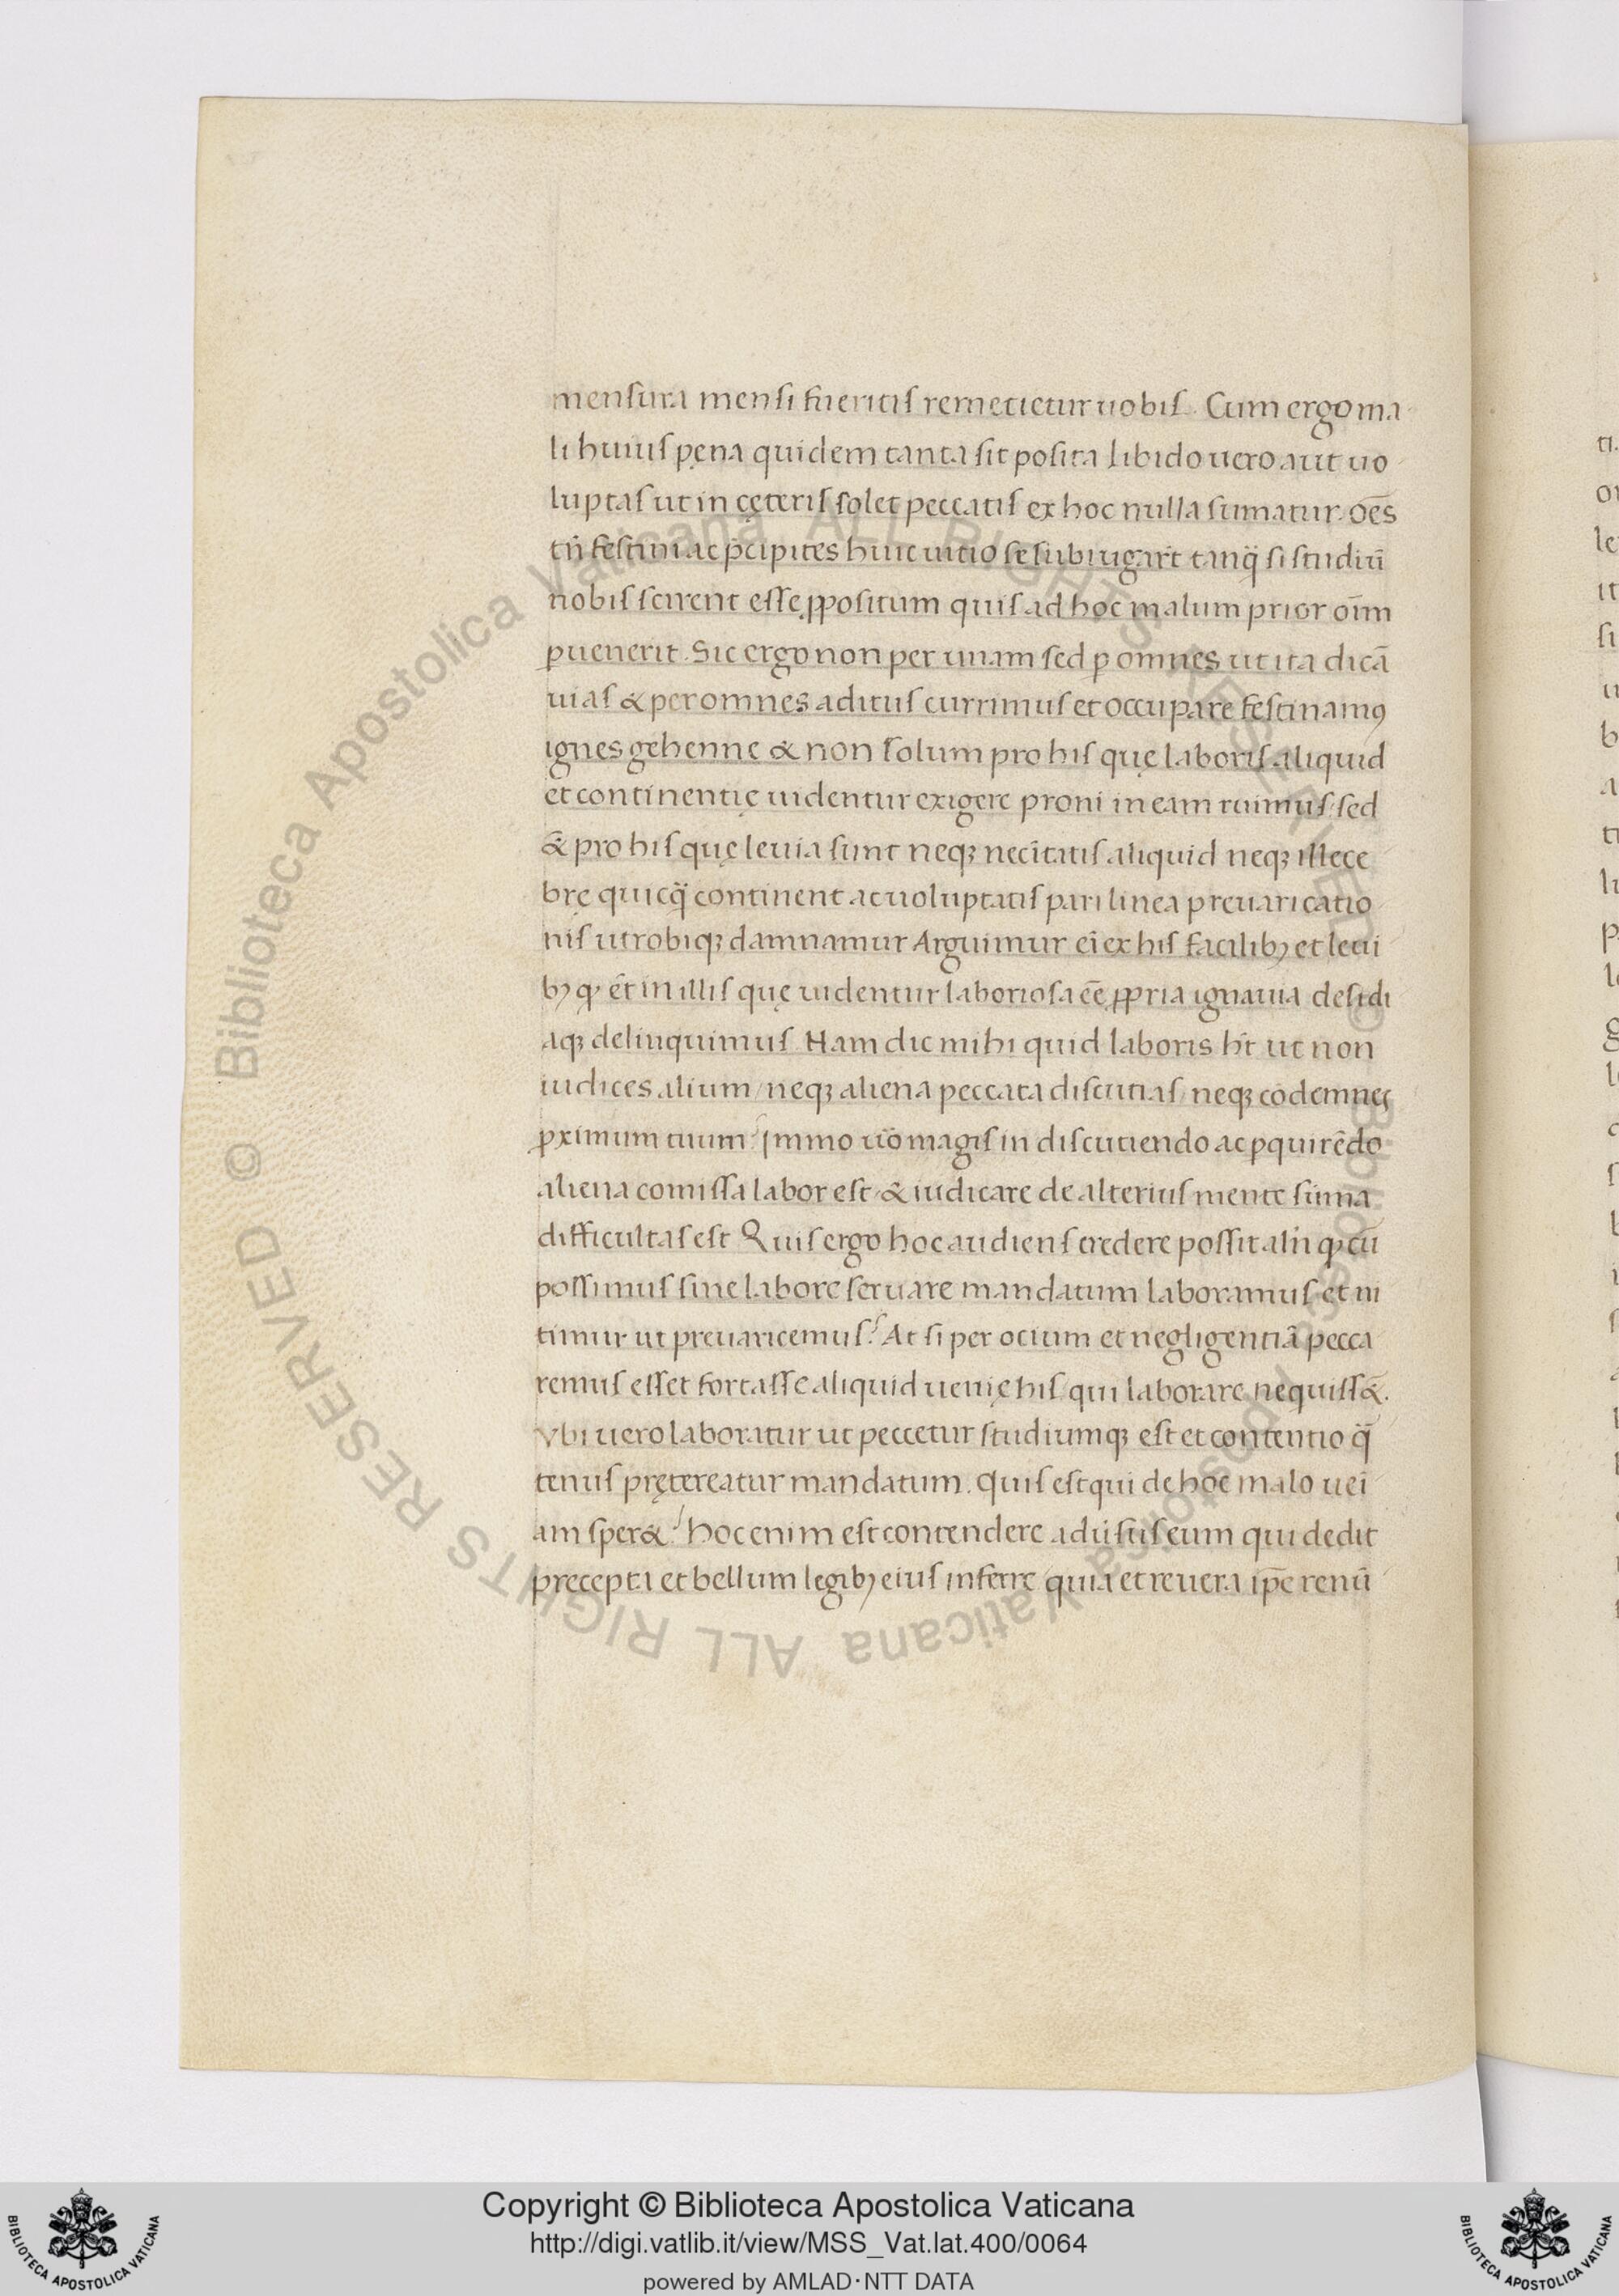 mensura mensi fueritis remetietur uobis. Cum ergo ma
li huius pena quidem tanta sit posita libido uero aut uo
luptas ut in cęteris solet peccatis ex hoc nulla sumatur. oēs
tn̄ festini ac p̄cipites huic uitio se subiugar̄t tanq̄ si studiū
nobis scirent esse ꝓpositum quis ad hoc malum prior oīm
ꝑuenerit. Sic ergo non per unam sed ꝑ omnes ut ita dicā
uias & per omnes aditus currimus et occupare festinamꝰ
ignes gehenne & non solum pro his quę laboris aliquid
et continentię uidentur exigere proni in eam ruimus: sed
& pro his quę leuia sunt neqꝫ necītatis aliquid neqꝫ illece
brę quicq̄ continent ac uoluptatis pari linea preuaricatio
nis utrobiqꝫ damnamur Arguimur eī ex his facilibꝫ et leui
bꝫ ꝙ ēt in illis quę uidentur laboriosa eē ꝓpria ignauia desidi
aqꝫ delinquimus Nam dic mihi quid laboris ht̄ ut non
iudices alium / neqꝫ aliena peccata discutias / neqꝫ cōdemnes
ꝓximum tuum? Immo uō magis in discutiendo ac ꝑquirēdo
aliena comissa labor est / & iudicare de alterius mente sūma
difficultas est Quis ergo hoc audiens credere possit aln̄ ꝙ cū
possimus sine labore seruare mandatum laboramus et ni
timur ut preuaricemus? At si per ocium et negligentiā pecca
remus esset fortasse aliquid uenię his qui laborare nequiss&̄.
Vbi uero laboratur ut peccetur studiumqꝫ est et contentio q̄
tenus prętereatur mandatum. Quis est qui de hoc malo ueī
am sper&? hoc enim est contendere adūsus eum qui dedit
precepta et bellum legibꝫ eius inferre quia et reuera ip̄e renū
Copyright © Biblioteca Apostolica Vaticana
http://digi.vatlib.it/view/MSS_Vat.lat.400/0064
powered by AMLAD·NTT DATA
BIBLIOTECA APOSTOLICA VATICANA
BIBLIOTECA APOSTOLICA VATICANA
© Biblioteca Apostolica Vaticana ALL RIGHTS RESERVED
© Biblioteca Apostolica Vaticana ALL RIGHTS RESERVED